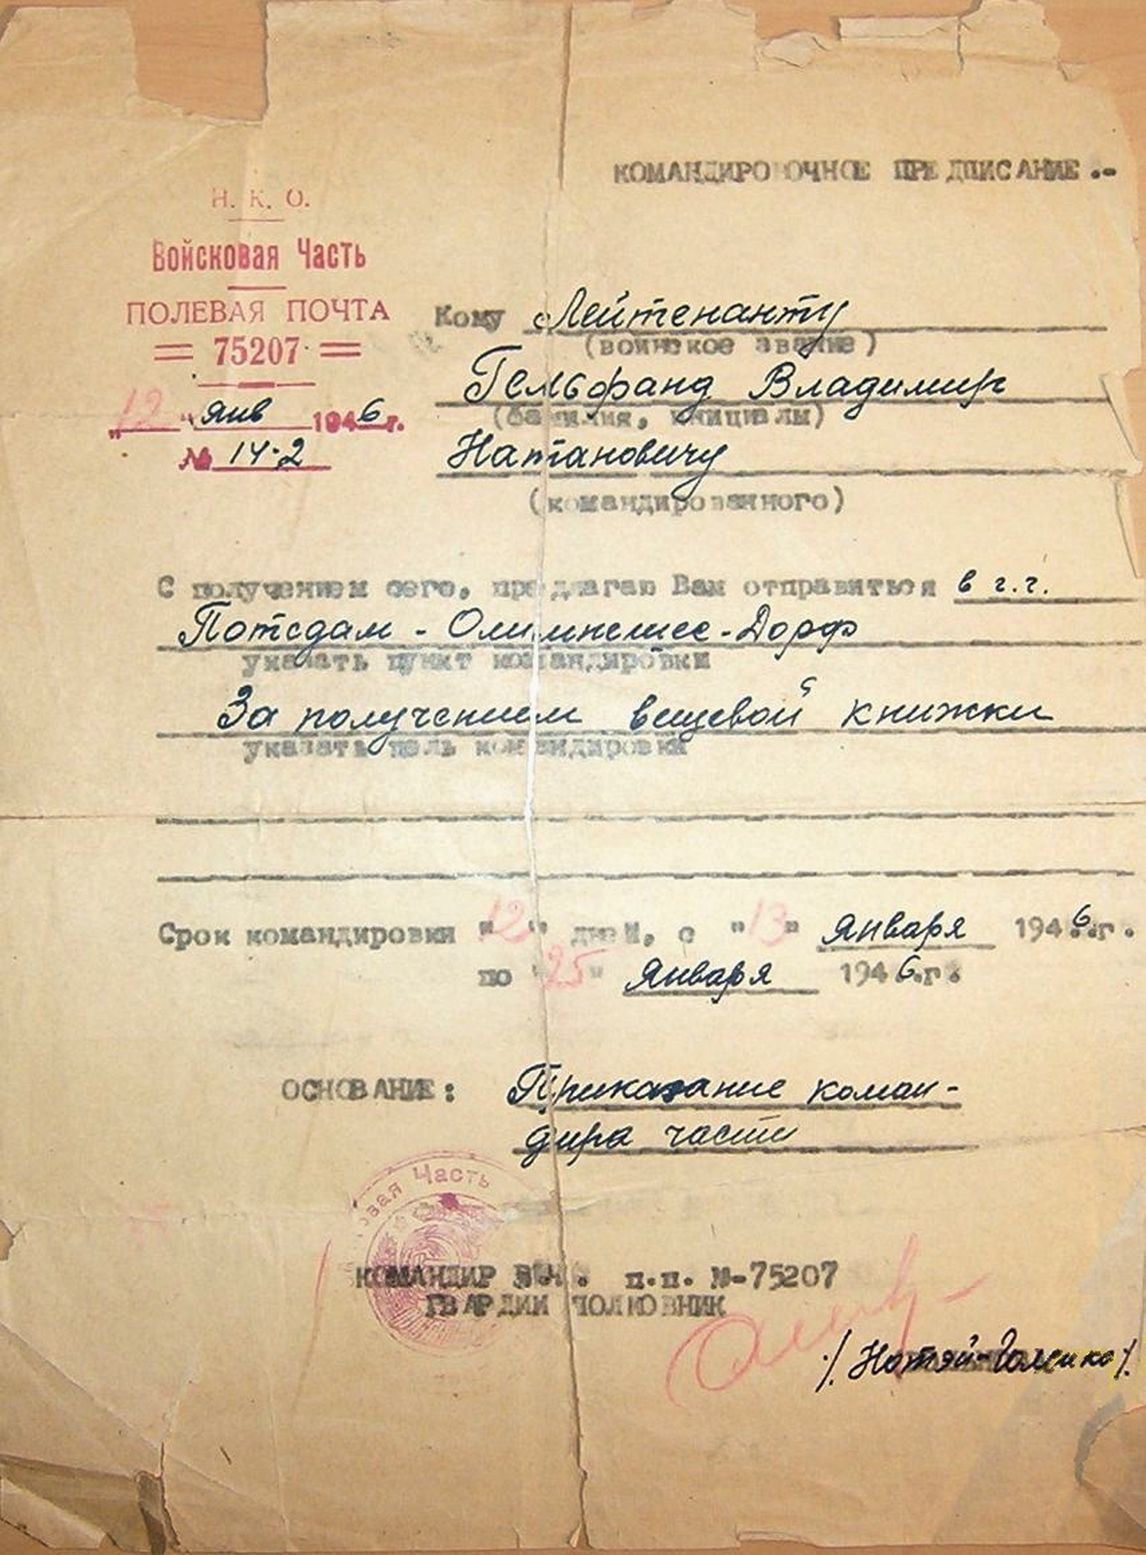 КОМАНДИРОВОЧНОЕ ПРЕДПИСАНИЕ.-
Н. К. О.
Войсковая Часть
ПОЛЕВАЯ ПОЧТА
= 75207 =
"12" янв 1946 г.
№ 14-2
Кому Лейтенанту
(воинское звание)
Гельфанд Владимир
(фамилия, инициалы)
Натановичу
(командированного)
С получением сего, предлагаю Вам отправиться в г.г.
Потсдам - Олимпешес-Дорф
указать пункт командировки
За получением вещевой книжки
указать цель командировки
Срок командировки "12" дней, с "13" января 1946.г.
по "25" января 1946.г.
ОСНОВАНИЕ: Приказание коман-
дира части
овая Часть
КОМАНДИР В.Ч. п.п. №-75207
ГВАРДИИ ПОЛКОВНИК
/.